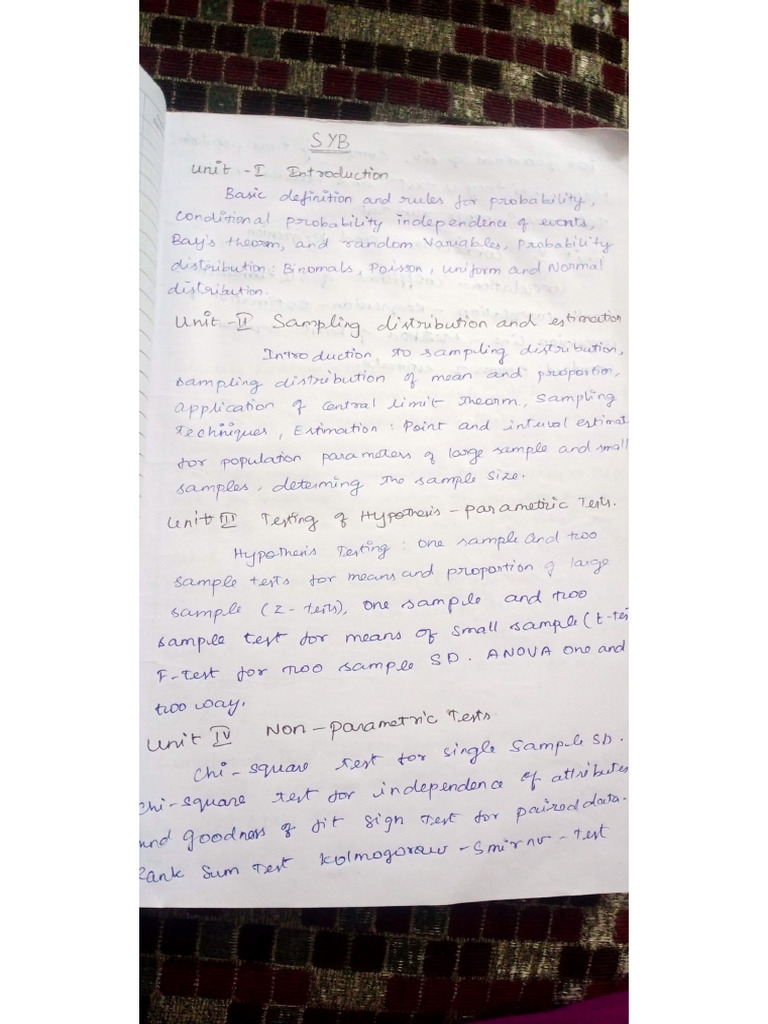 SYB
Unit - I Introduction
Basic definition and rules for probability,
conditional probability independence of events,
Bay's theorm, and random Variables, Probability
distribution: Binomals, Poisson, uniform and Normal
distribution.
Unit - II Sampling distribution and estimation
Introduction to sampling distribution,
sampling distribution of mean and proportion,
application of Central limit Theorm, Sampling
Techniques, Estimation: Point and interval estimat
for population parameters of large sample and small
samples, determing the sample size.
Unit III Testing of Hypothesis - parametric Tests.
Hypothesis Testing: one sample and two
sample tests for means and proportion of large
sample (Z-tests), one sample and two
sample test for means of small sample (t-tes
F-test for two sample SD. ANOVA one and
two way.
Unit IV Non-parametric Tests.
Chi-square test for single Sample SD.
Chi-square test for independence of attributes
and goodness of fit Sign Test for paired data.
Rank Sum Test Kolmogoraw - Smirnv - Test